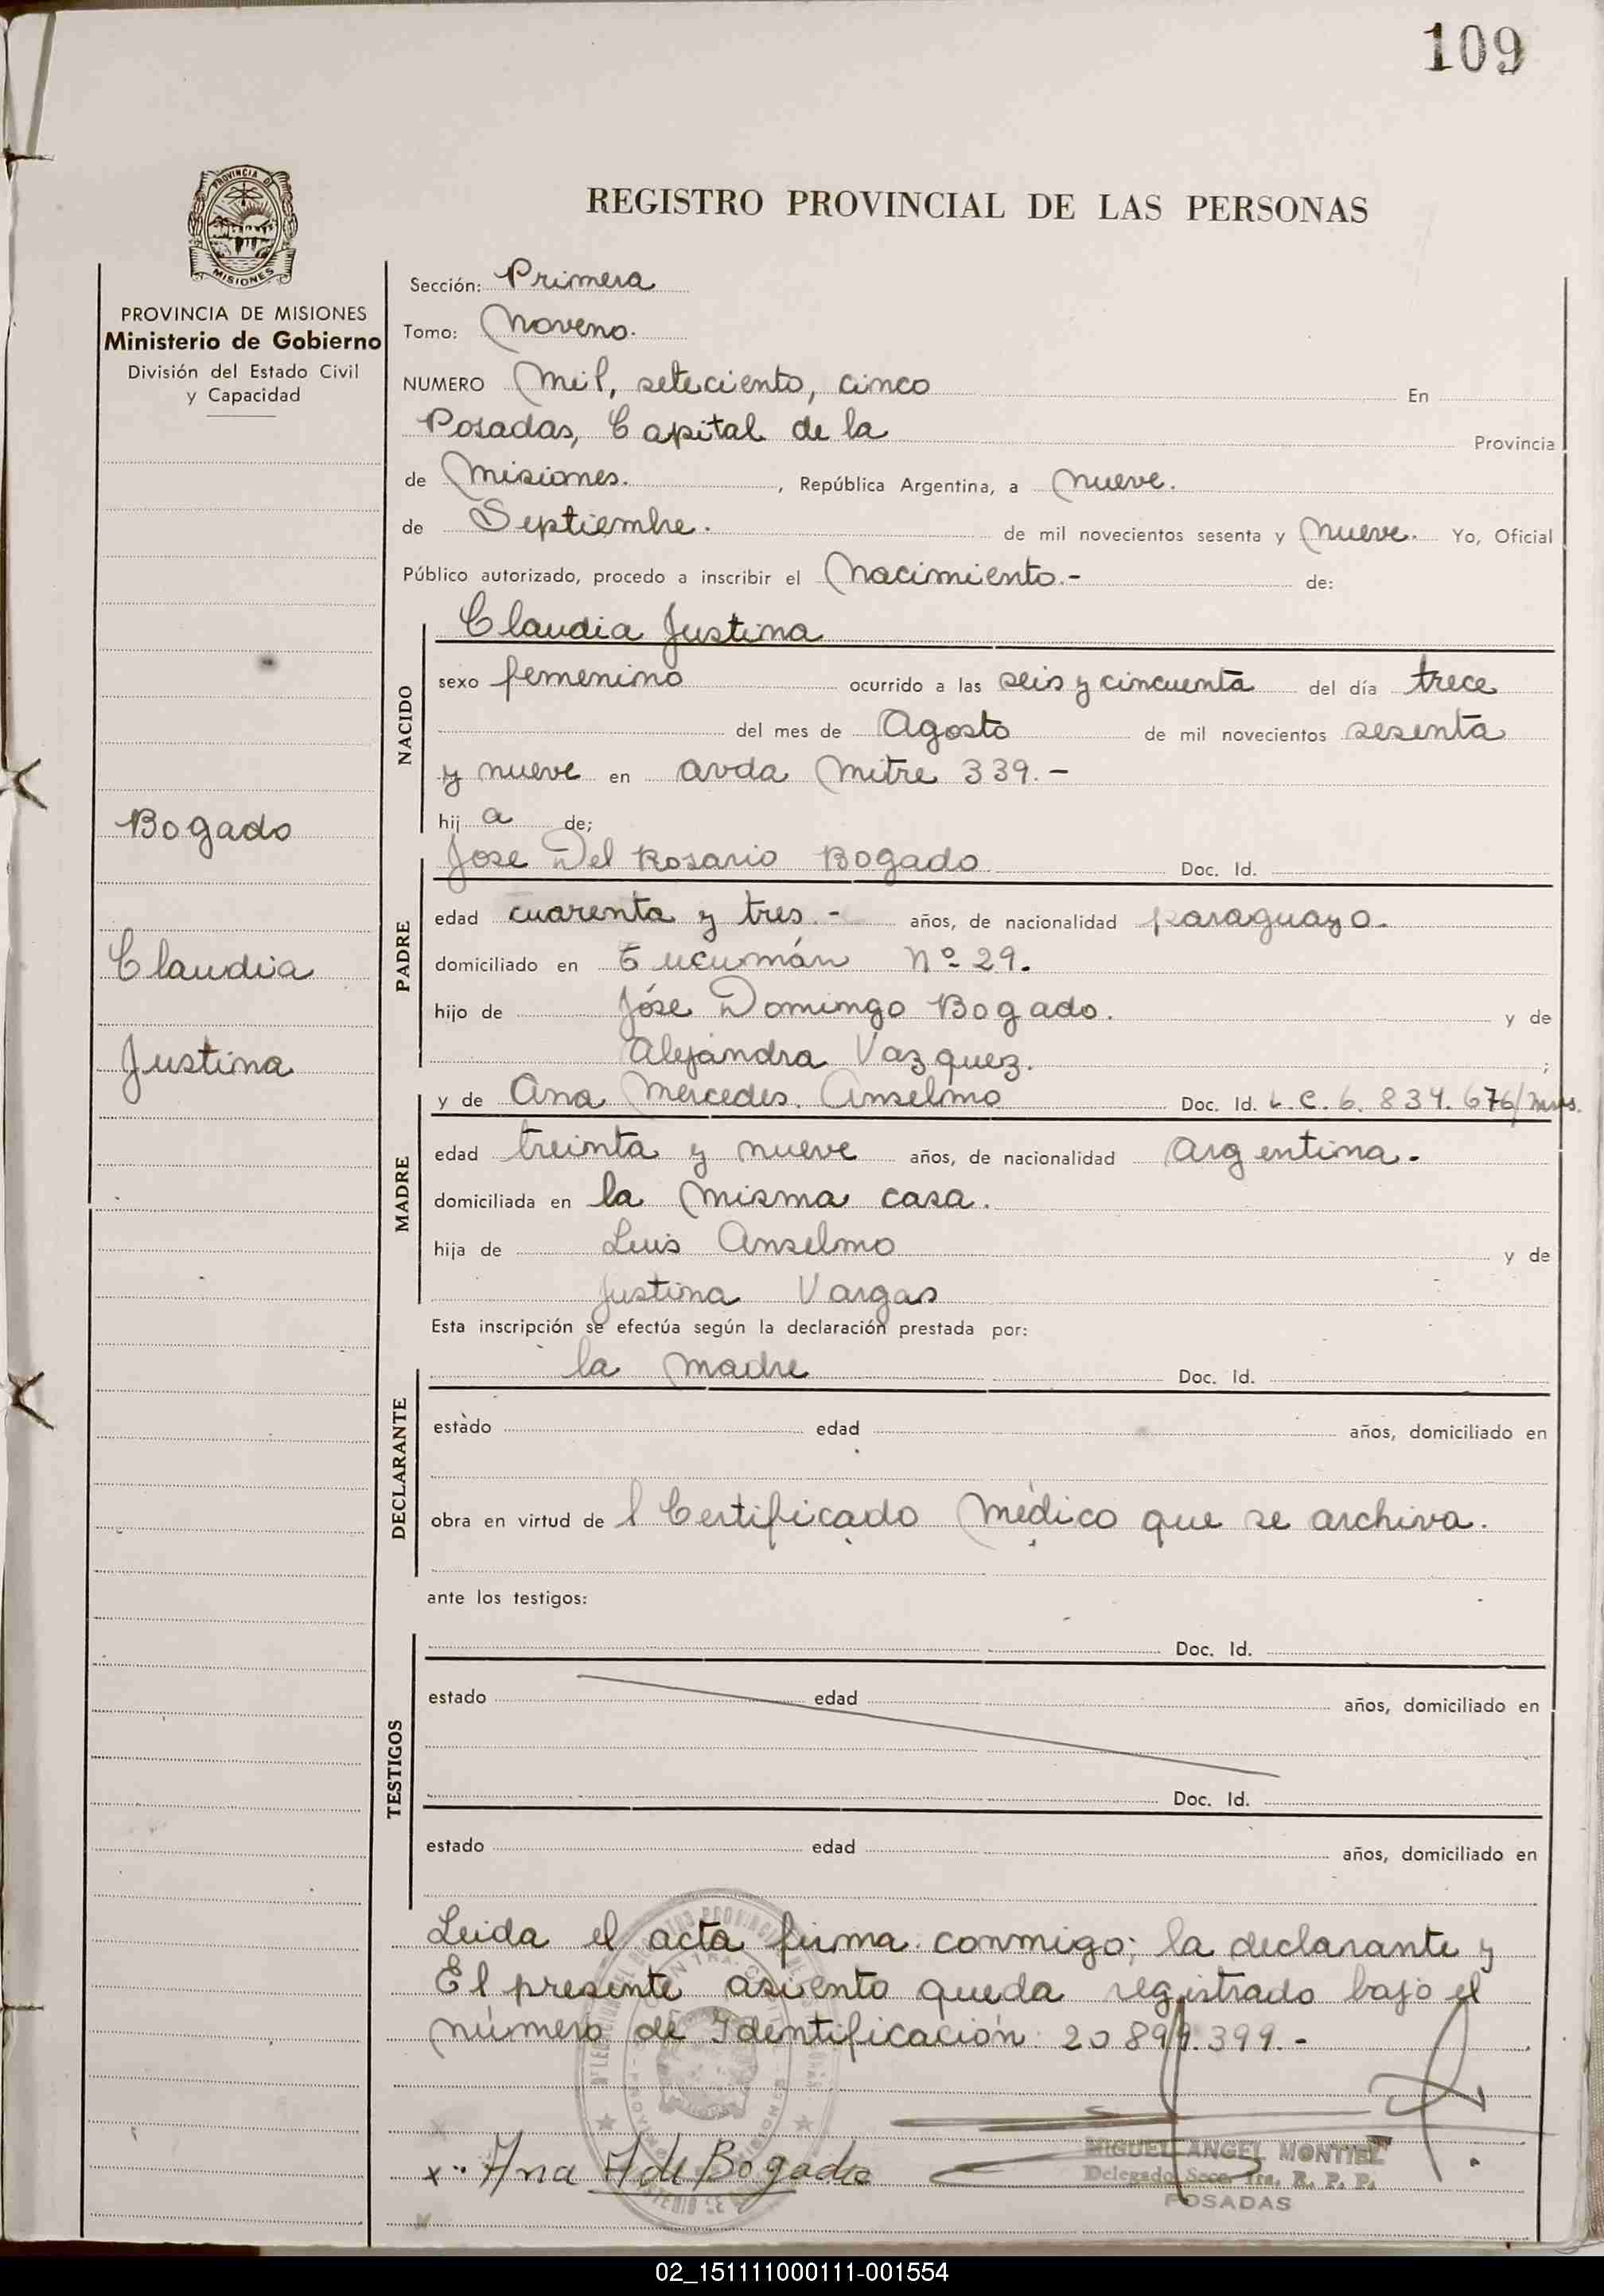 109
PROVINCIA DE
MISIONES
REGISTRO PROVINCIAL DE LAS PERSONAS
PROVINCIA DE MISIONES
Ministerio de Gobierno
División del Estado Civil
y Capacidad
Bogado
Claudia
Justina
Sección: Primera
Tomo: Noveno.
NUMERO Mil, seteciento, cinco En
Posadas, Capital de la Provincia
de Misiones. , República Argentina, a Nueve.
de Septiembre. de mil novecientos sesenta y Nueve. Yo, Oficial
Público autorizado, procedo a inscribir el Nacimiento.- de:
NACIDO
Claudia Justina
sexo femenino ocurrido a las seis y cincuenta del día trece
del mes de Agosto de mil novecientos sesenta
y nueve en avda Mitre 339.-
hij a de;
PADRE
Jose Del Rosario Bogado Doc. Id.
edad cuarenta y tres.- años, de nacionalidad paraguayo.
domiciliado en Tucumán Nº 29.
hijo de Jóse Domingo Bogado. y de
Alejandra Vazquez. ;
MADRE
y de Ana Mercedes. Anselmo Doc. Id. L.C. 6.834.676/Mns.
edad treinta y nueve años, de nacionalidad Argentina.
domiciliada en la misma casa.
hija de Luis Anselmo y de
Justina Vargas
Esta inscripción se efectúa según la declaración prestada por:
DECLARANTE
la madre Doc. Id.
estado edad años, domiciliado en
obra en virtud de l Certificado Médico que se archiva.
ante los testigos:
TESTIGOS
Doc. Id.
estado edad años, domiciliado en
Doc. Id.
estado edad años, domiciliado en
Leida el acta firma conmigo; la declarante y
El presente asiento queda registrado bajo el
número de Identificación: 20.899.399.-
x Ana A de Bogado
MIGUEL ANGEL MONTIEL
Delegado Secc. 1ra. R. P. P.
POSADAS
02_151111000111-001554